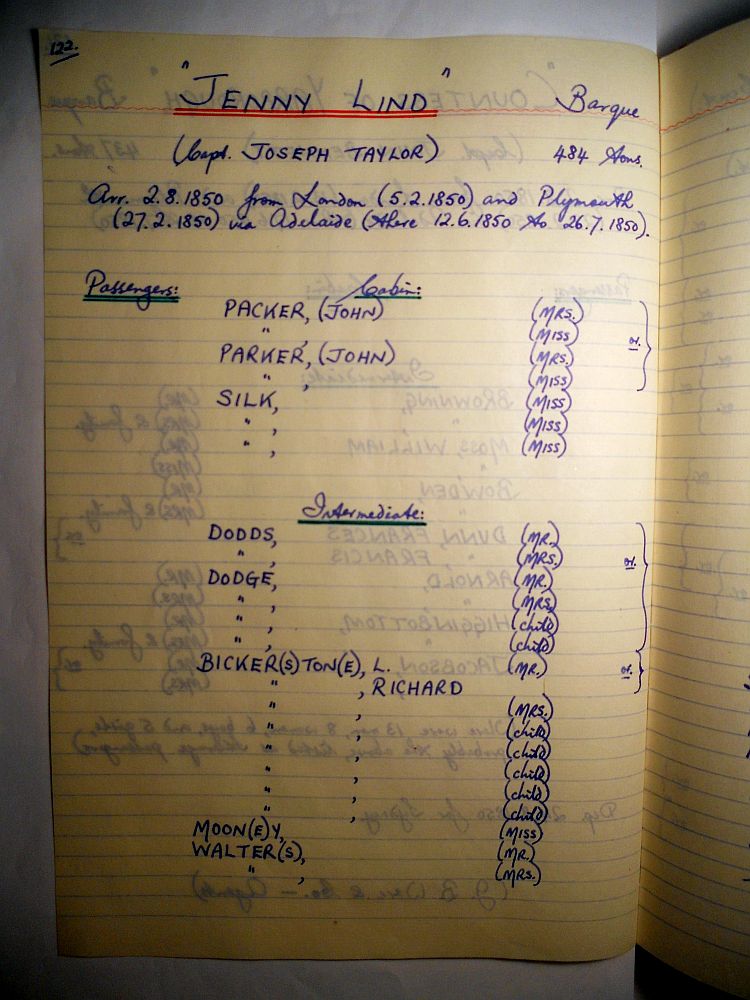 122.
"JENNY LIND" Barque
(Capt. JOSEPH TAYLOR) 484 tons.
Arr. 2.8.1850 from London (5.2.1850) and Plymouth
(27.2.1850) via Adelaide (there 12.6.1850 to 26.7.1850).
Passengers: Cabin:
PACKER, (JOHN) (MRS.)
" , (MISS)
PARKER, (JOHN) (MRS.) or.
" , (MISS)
SILK, (MISS)
" , (MISS)
" , (MISS)
Intermediate:
DODDS, (MR.)
" , (MRS.)
DODGE, (MR.) or.
" , (MRS.)
" , (child)
" , (child)
BICKER(S)TON(E), L. (MR.) or.
" , RICHARD
" , (MRS.)
" , (child)
" , (child)
" , (child)
" , (child)
" , (child)
MOON(E)Y, (MISS)
WALTER(S), (MR.)
" , (MRS.)